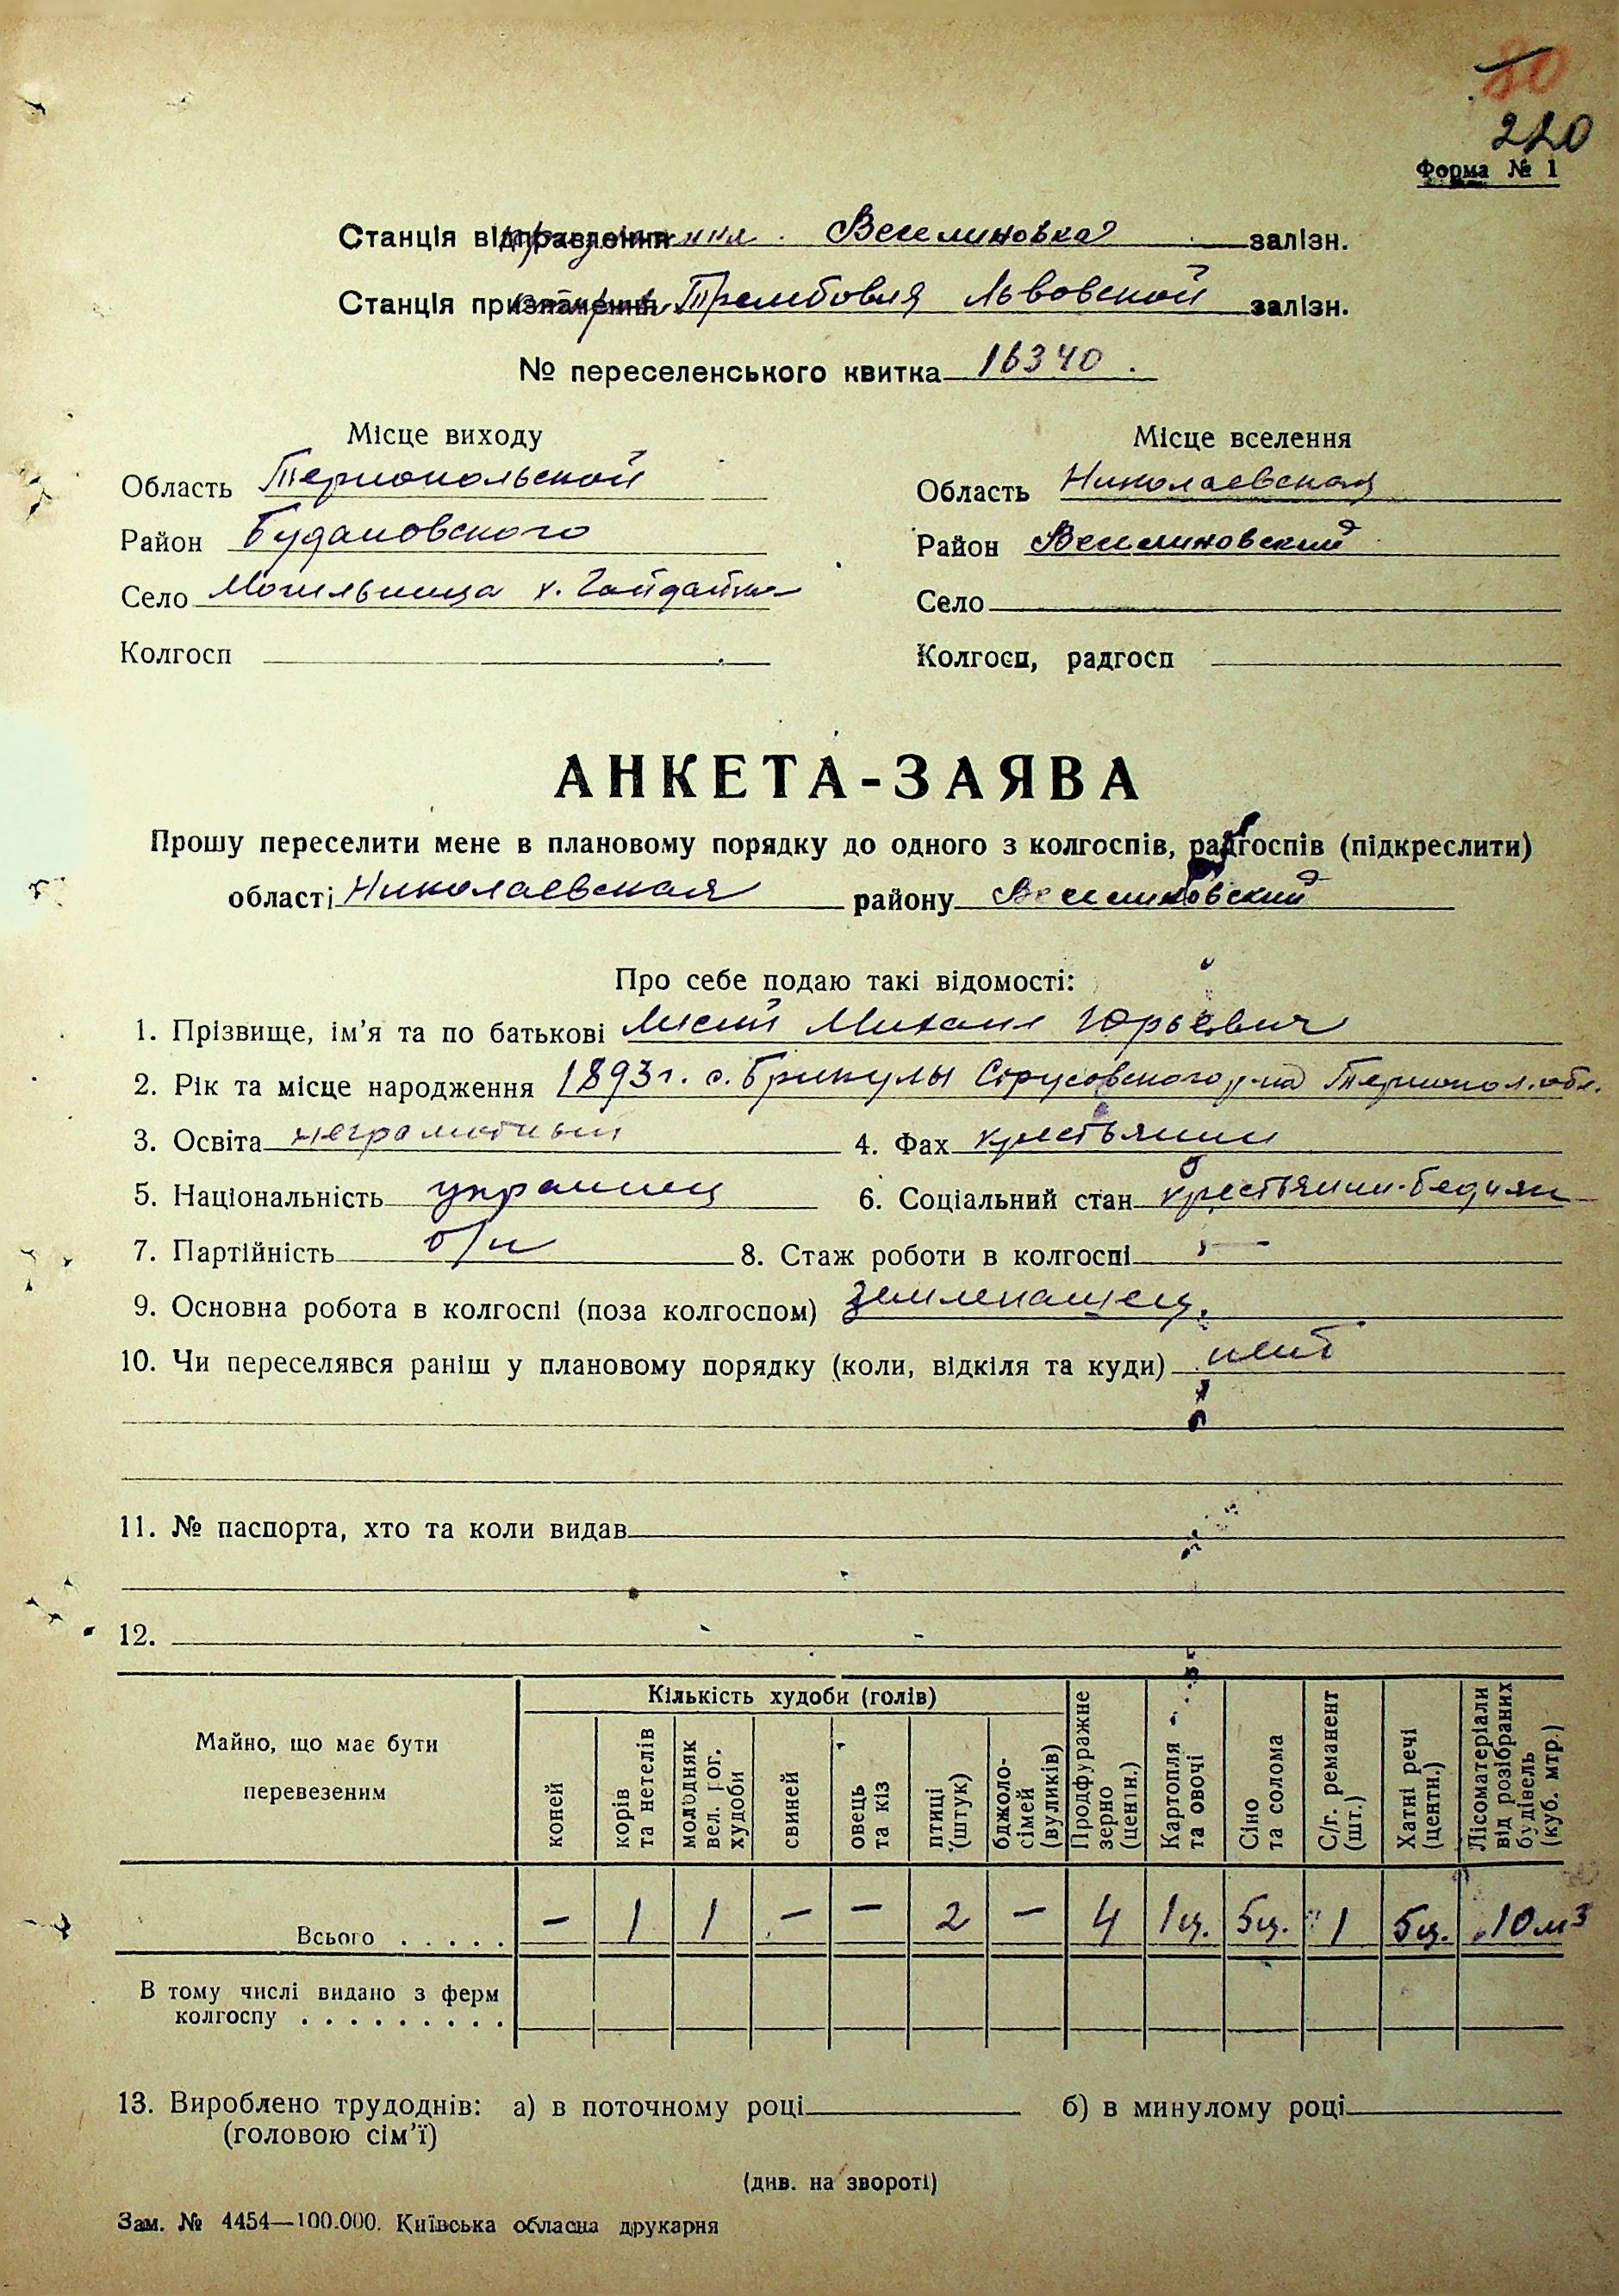 80
220
Форма № 1
Станція відправлення Веселиновка залізн.
Станція призначення Трембовля Львовской залізн.
№ переселенського квитка 16340.
Місце виходу Місце вселення
Область Тернопольской Область Николаевская
Район Будановского Район Веселиновский
Село Могильница х. Гайдайка Село
Колгосп Колгосп, радгосп
АНКЕТА-ЗАЯВА
Прошу переселити мене в плановому порядку до одного з колгоспів, радгоспів (підкреслити)
області Николаевская району Веселиновский
Про себе подаю такі відомості:
1. Прізвище, ім'я та по батькові Лисий Михаил Юрьевич
2. Рік та місце народження 1893 г. с. Брикулы Струсовского р-на Тернопол. обл.
3. Освіта неграмотный 4. Фах крестьянин
5. Національність украинец 6. Соціальний стан крестьянин-бедняк
7. Партійність б/п 8. Стаж роботи в колгоспі —
9. Основна робота в колгоспі (поза колгоспом) землепашец.
10. Чи переселявся раніш у плановому порядку (коли, відкіля та куди) нет
11. № паспорта, хто та коли видав
12.
Майно, що має бути перевезеним
Кількість худоби (голів)
коней
корів та нетелів
молодняк вел. рог. худоби
свиней
овець та кіз
птиці (штук)
бджоло-сімей (вуликів)
Продфуражне зерно (центн.)
Картопля та овочі
Сіно та солома
С/г. реманент (шт.)
Хатні речі (центн.)
Лісоматеріали від розібраних будівель (куб. мтр.)
Всього . . . . . — 1 1 — — 2 — 4 1ц. 5ц. 1 5ц. 10 м³
В тому числі видано з ферм
колгоспу . . . . . . . . .
13. Вироблено трудоднів: а) в поточному році б) в минулому році
(головою сім'ї)
(див. на звороті)
Зам. № 4454—100.000. Київська обласна друкарня